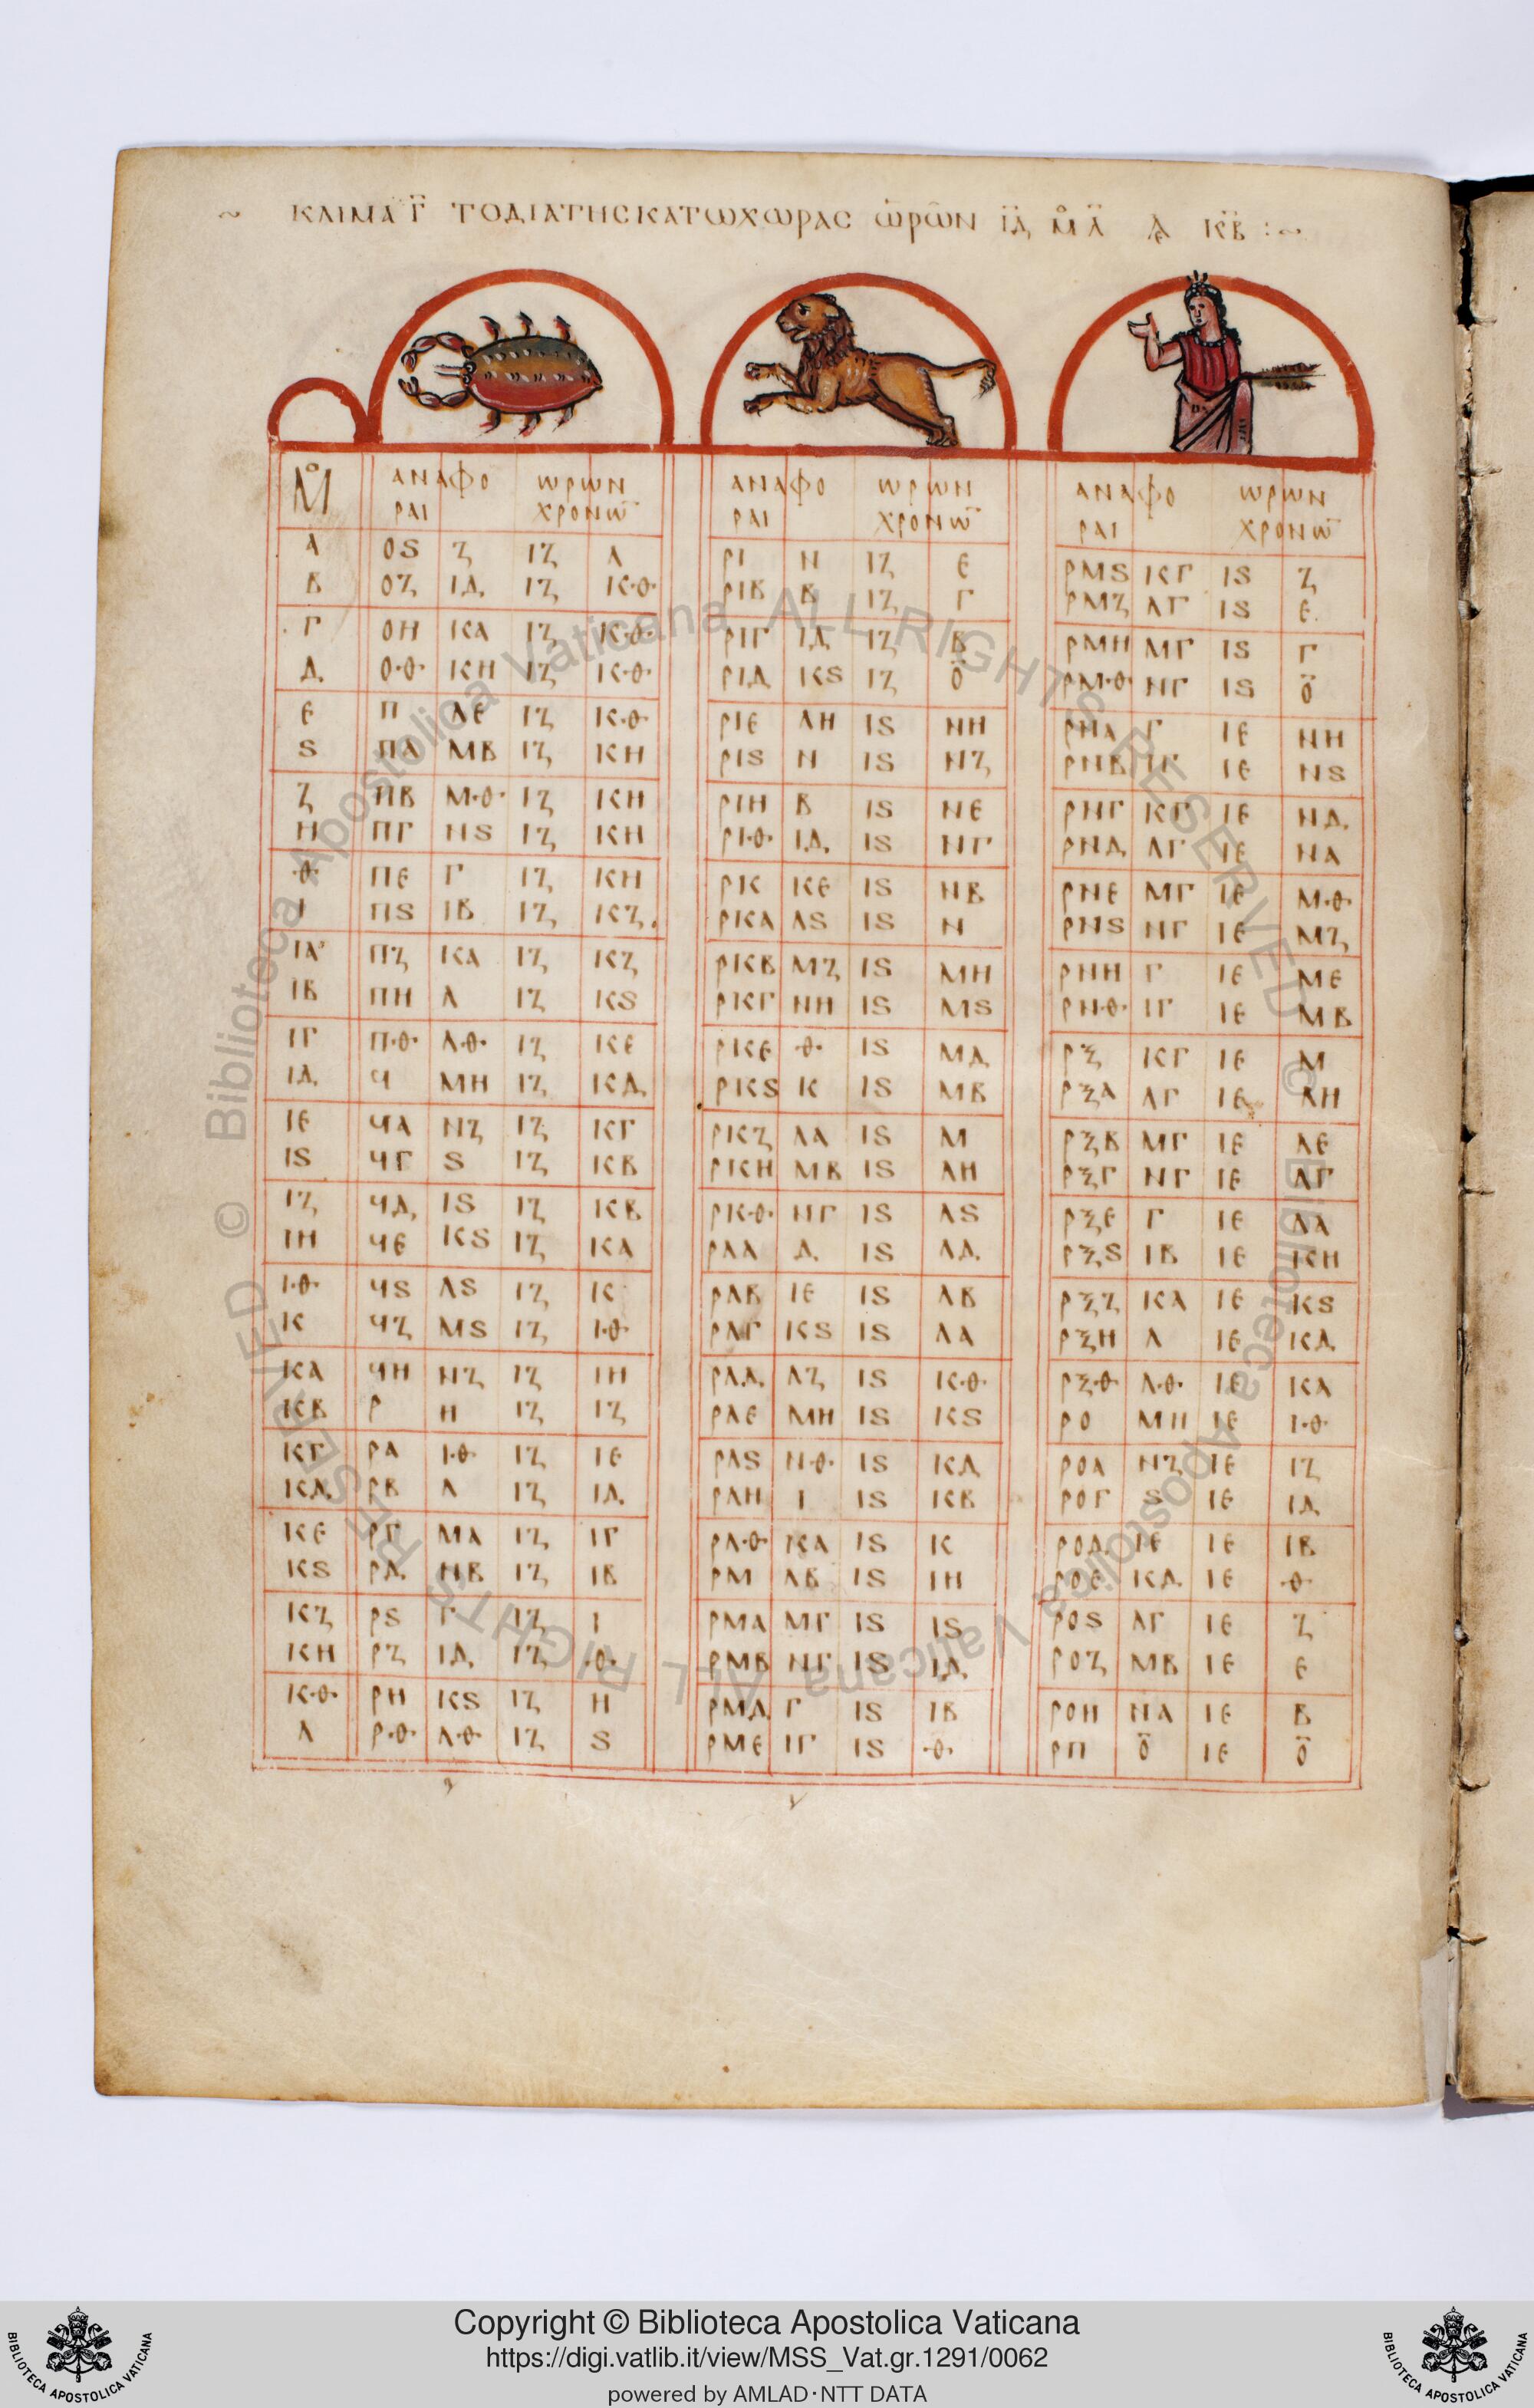 ~ ΚΛΙΜΑ Γ̈ ΤΟΔΙΑΤΗСΚΑΤΩΧΩΡΑС ΩΡΩΝ ΙΔ Μ̊ Λ̈ ΚΒ̈ :~
Μ̊ ΑΝΑΦΟ ΩΡΩΝ ΑΝΑΦΟ ΩΡΩΝ ΑΝΑΦΟ ΩΡΩΝ
ΡΑΙ ΧΡΟΝΩ̄ ΡΑΙ ΧΡΟΝΩ̄ ΡΑΙ ΧΡΟΝΩ̄
Α ΟϚ Ζ ΙΖ Λ ΡΙ Ν ΙΖ Ε ΡΜϚ ΚΓ ΙϚ Ζ
Β ΟΖ ΙΔ ΙΖ ΚΘ ΡΙΒ Β ΙΖ Γ ΡΜΖ ΛΓ ΙϚ Ε
Γ ΟΗ ΚΑ ΙΖ ΚΘ ΡΙΓ ΙΔ ΙΖ Β ΡΜΗ ΜΓ ΙϚ Γ
Δ ΟΘ ΚΗ ΙΖ ΚΘ ΡΙΔ ΚϚ ΙΖ Ο̈ ΡΜΘ ΝΓ ΙϚ Ο̈
Ε Π ΛΕ ΙΖ ΚΘ ΡΙΕ ΛΗ ΙϚ ΝΗ ΡΝΑ Γ ΙΕ ΝΗ
Ϛ ΠΑ ΜΒ ΙΖ ΚΗ ΡΙϚ Ν ΙϚ ΝΖ ΡΝΒ ΙΓ ΙΕ ΝϚ
Ζ ΠΒ ΜΘ ΙΖ ΚΗ ΡΙΗ Β ΙϚ ΝΕ ΡΝΓ ΚΓ ΙΕ ΝΔ
Η ΠΓ ΝϚ ΙΖ ΚΗ ΡΙΘ ΙΔ ΙϚ ΝΓ ΡΝΔ ΛΓ ΙΕ ΝΑ
Θ ΠΕ Γ ΙΖ ΚΗ ΡΚ ΚΕ ΙϚ ΝΒ ΡΝΕ ΜΓ ΙΕ ΜΘ
Ι ΠϚ ΙΒ ΙΖ ΚΖ ΡΚΑ ΛϚ ΙϚ Ν ΡΝϚ ΝΓ ΙΕ ΜΖ
ΙΑ ΠΖ ΚΑ ΙΖ ΚΖ ΡΚΒ ΜΖ ΙϚ ΜΗ ΡΝΗ Γ ΙΕ ΜΕ
ΙΒ ΠΗ Λ ΙΖ ΚϚ ΡΚΓ ΝΗ ΙϚ ΜϚ ΡΝΘ ΙΓ ΙΕ ΜΒ
ΙΓ ΠΘ ΛΘ ΙΖ ΚΕ ΡΚΕ Θ ΙϚ ΜΔ ΡΞ ΚΓ ΙΕ Μ
ΙΔ Ϥ ΜΗ ΙΖ ΚΔ ΡΚϚ Κ ΙϚ ΜΒ ΡΞΑ ΛΓ ΙΕ ΛΗ
ΙΕ ϤΑ ΝΖ ΙΖ ΚΓ ΡΚΖ ΛΑ ΙϚ Μ ΡΞΒ ΜΓ ΙΕ ΛΕ
ΙϚ ϤΓ Ϛ ΙΖ ΚΒ ΡΚΗ ΜΒ ΙϚ ΛΗ ΡΞΓ ΝΓ ΙΕ ΛΓ
ΙΖ ϤΔ ΙϚ ΙΖ ΚΒ ΡΚΘ ΝΓ ΙϚ ΛϚ ΡΞΕ Γ ΙΕ ΛΑ
ΙΗ ϤΕ ΚϚ ΙΖ ΚΑ ΡΛΑ Δ ΙϚ ΛΔ ΡΞϚ ΙΒ ΙΕ ΚΗ
ΙΘ ϤϚ ΛϚ ΙΖ Κ ΡΛΒ ΙΕ ΙϚ ΛΒ ΡΞΖ ΚΑ ΙΕ ΚϚ
Κ ϤΖ ΜϚ ΙΖ ΙΘ ΡΛΓ ΚϚ ΙϚ ΛΑ ΡΞΗ Λ ΙΕ ΚΔ
ΚΑ ϤΗ ΝΖ ΙΖ ΙΗ ΡΛΔ ΛΖ ΙϚ ΚΘ ΡΞΘ ΛΘ ΙΕ ΚΑ
ΚΒ Ρ Η ΙΖ ΙΖ ΡΛΕ ΜΗ ΙϚ ΚϚ ΡΟ ΜΗ ΙΕ ΙΘ
ΚΓ ΡΑ ΙΘ ΙΖ ΙΕ ΡΛϚ ΝΘ ΙϚ ΚΔ ΡΟΑ ΝΖ ΙΕ ΙΖ
ΚΔ ΡΒ Λ ΙΖ ΙΔ ΡΛΗ Ι ΙϚ ΚΒ ΡΟΓ Ϛ ΙΕ ΙΔ
ΚΕ ΡΓ ΜΑ ΙΖ ΙΓ ΡΛΘ ΚΑ ΙϚ Κ ΡΟΔ ΙΕ ΙΕ ΙΒ
ΚϚ ΡΔ ΝΒ ΙΖ ΙΒ ΡΜ ΛΒ ΙϚ ΙΗ ΡΟΕ ΚΔ ΙΕ Θ
ΚΖ ΡϚ Γ ΙΖ Ι ΡΜΑ ΜΓ ΙϚ ΙϚ ΡΟϚ ΛΓ ΙΕ Ζ
ΚΗ ΡΖ ΙΔ ΙΖ Θ ΡΜΒ ΝΓ ΙϚ ΙΔ ΡΟΖ ΜΒ ΙΕ Ε
ΚΘ ΡΗ ΚϚ ΙΖ Η ΡΜΔ Γ ΙϚ ΙΒ ΡΟΗ ΝΑ ΙΕ Β
Λ ΡΘ ΛΘ ΙΖ Ϛ ΡΜΕ ΙΓ ΙϚ Θ ΡΠ Ο̈ ΙΕ Ο̈
© Biblioteca Apostolica Vaticana ALL RIGHTS RESERVED
© Biblioteca Apostolica Vaticana ALL RIGHTS RESERVED
Copyright © Biblioteca Apostolica Vaticana
https://digi.vatlib.it/view/MSS_Vat.gr.1291/0062
powered by AMLAD·NTT DATA
BIBLIOTECA APOSTOLICA VATICANA
BIBLIOTECA APOSTOLICA VATICANA